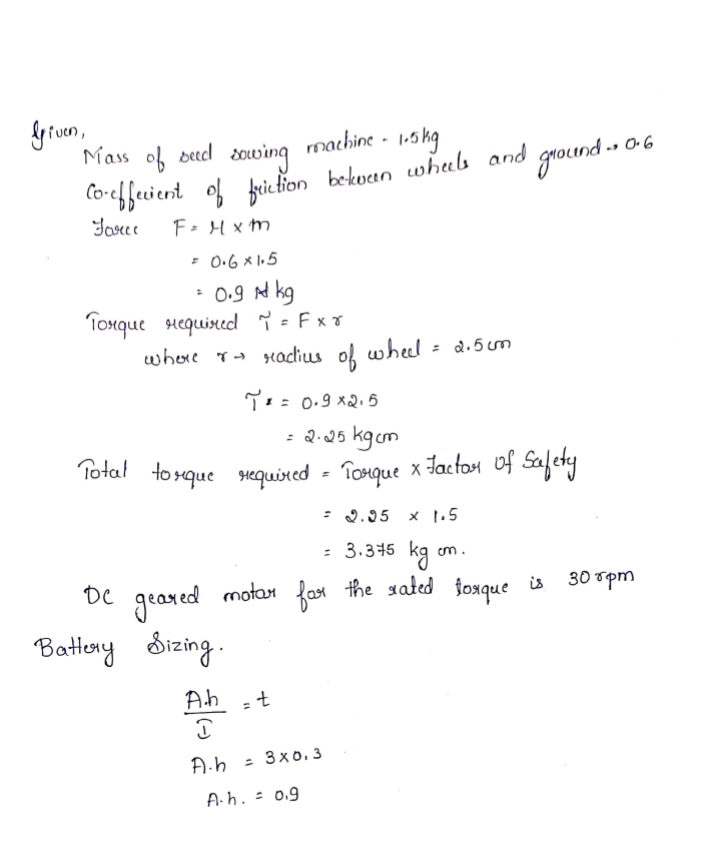 Given,
Mass of seed sowing machine - 1.5kg
Co-effecient of friction between wheels and ground → 0.6
Force F = μ x m
= 0.6 x 1.5
= 0.9 kg
Torque required T = F x r
where r → radius of wheel = 2.5cm
T = 0.9 x2.5
= 2.25 kgcm
Total torque required = Torque x Factor of Safety
= 2.25 x 1.5
= 3.375 kg cm.
DC geared motor for the rated torque is 30 rpm
Battery Sizing.
A.h / I = t
A.h = 3x0.3
A.h. = 0.9